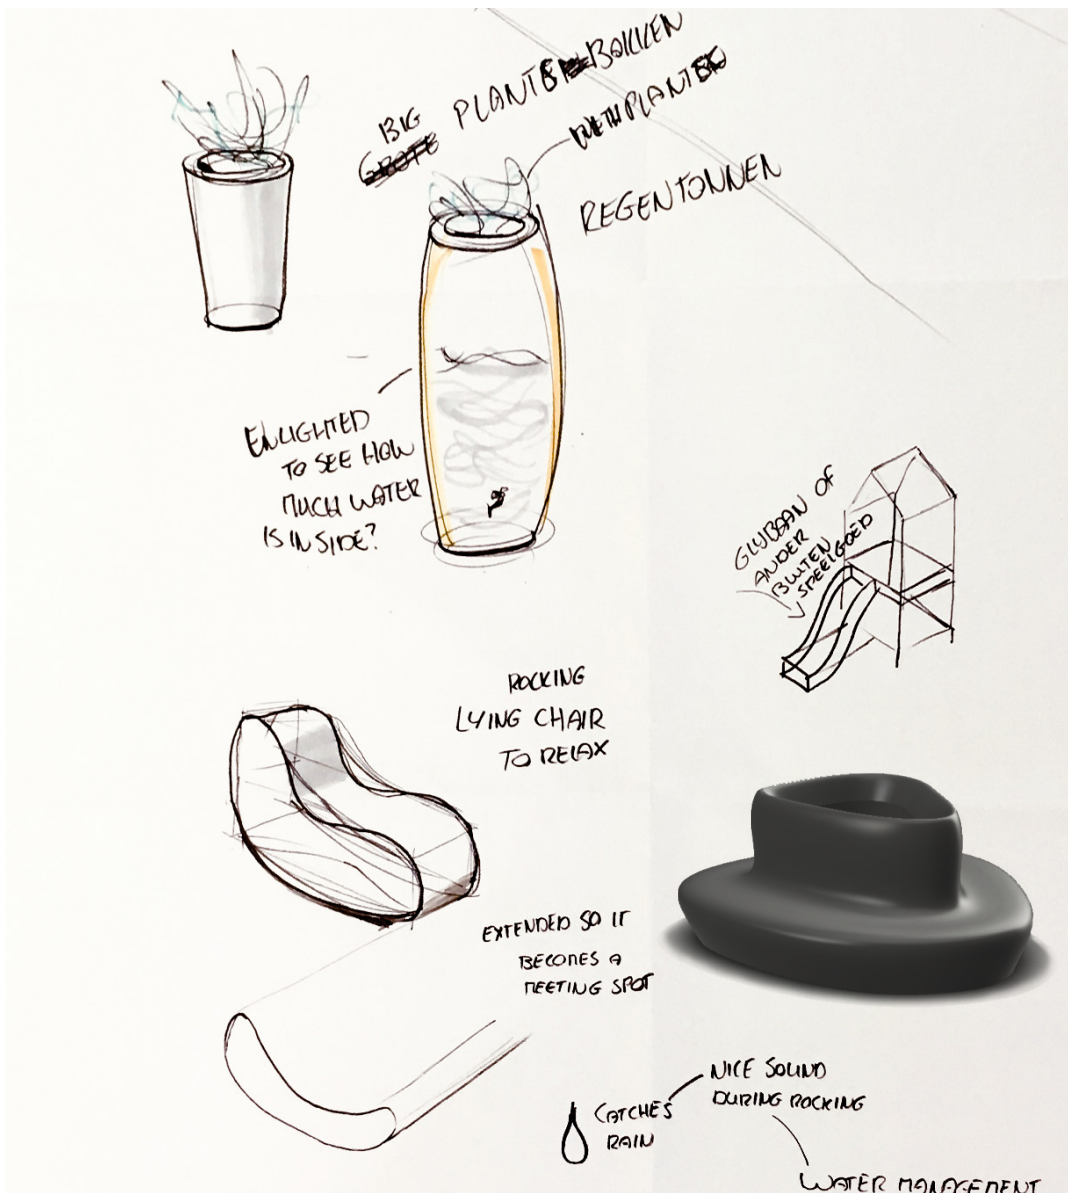 BIG
PLANTEN BAKKEN
GROTE
WITH PLANTEN
REGENTONNEN
ENLIGHTED
TO SEE HOW
MUCH WATER
IS IN SIDE?
GLYBAAN OF
ANDER
BUITEN
SPEELGOED
ROCKING
LYING CHAIR
TO RELAX
EXTENDED SO IT
BECOMES A
MEETING SPOT
NICE SOUND
DURING ROCKING
CATCHES
RAIN
WATER MANAGEMENT